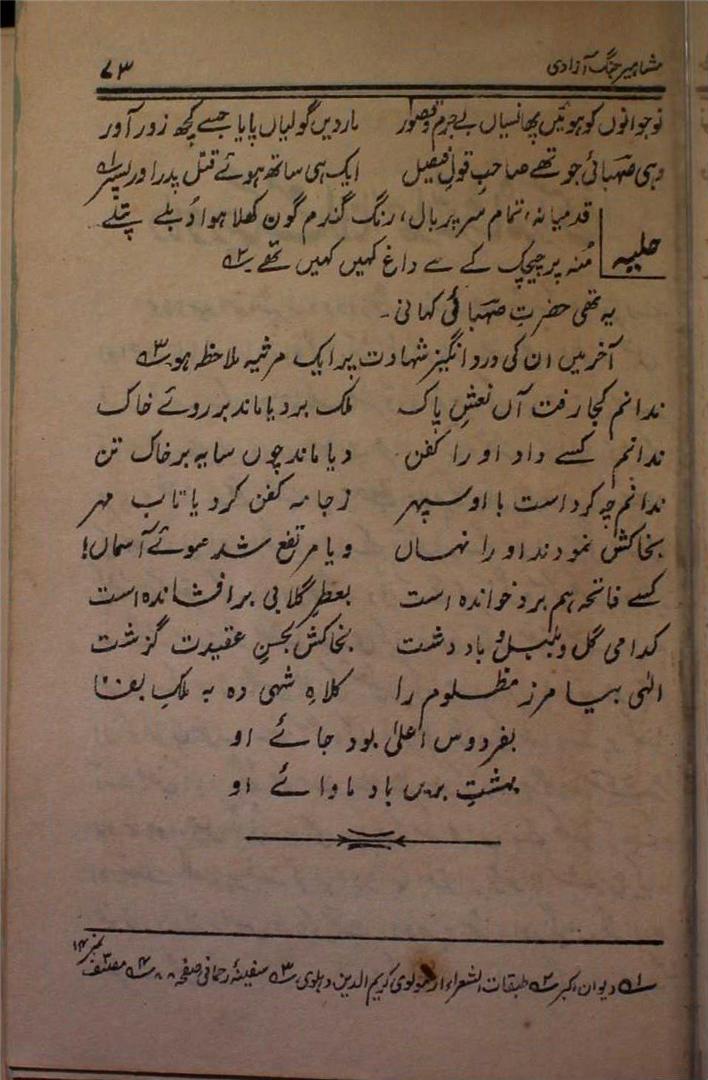 مشاہیر جنگ آزادی ۷۳
نوجوانوں کو ہوئیں پھانسیاں بے جرم و قصور مار دیں گولیاں پایا جسے کچھ زور آور
وہی صہبائی جو تھے صاحبِ قولِ فیصل ایک ہی ساتھ ہوئے قتل پدر اور پسر ؎۱
حلیہ قد میانہ، تمام سر پر بال، رنگ گندم گون کھلا ہوا دُبلے پتلے
مُنہ پر چیچک کے سے داغ کہیں کہیں تھے ؎۲
یہ تھی حضرتِ صہبائی کہانی۔
آخر میں ان کی درد انگیز شہادت پر ایک مرثیہ ملاحظہ ہو ؎۳
ندانم کجا رفت آں نعشِ پاک فلک برد یا ماند بر روئے خاک
ندانم کسے داد او را کفن و یا ماند چوں سایہ بر خاک تن
ندانم چہ کرد است با او سپہر ز جامہ کفن کرد یا تاب مہر
بخاکش نمودند او را نہاں و یا مرتفع شد سوئے آسماں!
کسے فاتحہ ہم برد خواندہ است بعطرِ گلابی بر افشاندہ است
کدامی گل و بلبل و باد دشت بخاکش بحسنِ عقیدت گزشت
الٰہی بیامرز مظلوم را کلاہِ شہی دہ بہ ملکِ بقا
بفردوس اعلیٰ بود جائے او
بہشتِ بریں باد ماوائے او
؎۱ دیوان اکبر ؎۲ طبقات الشعراء از مولوی کریم الدین دہلوی ؎۳ سفینۂ رحمانی صفحہ ؎۴ مصنف نمبر ۱۴